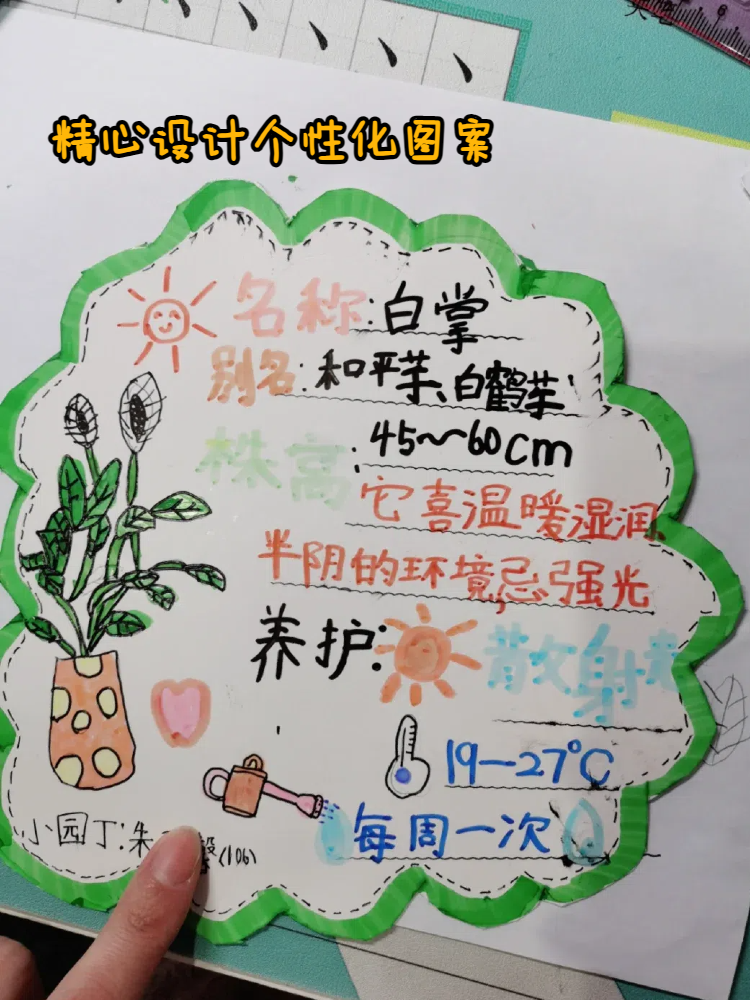 精心设计个性化图案
名称:白掌
别名:和平芋、白鹤芋
株高:45~60cm
它喜温暖湿润、
半阴的环境,忌强光
养护:散射
19—27℃
每周一次
小园丁:朱
(106)